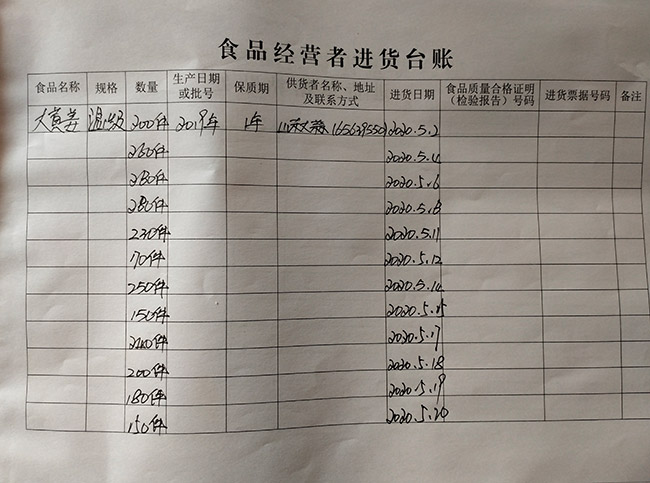 食品经营者进货台账
食品名称 规格 数量 生产日期或批号 保质期 供货者名称、地址及联系方式 进货日期 食品质量合格证明(检验报告)号码 进货票据号码 备注
大黄姜 200件 2019年 1年 2020.5.2
260件 2020.5.4
280件 2020.5.6
280件 2020.5.8
230件 2020.5.11
70件 2020.5.12
250件 2020.5.14
150件 2020.5.15
2020.5.17
200件 2020.5.18
180件 2020.5.19
150件 2020.5.20